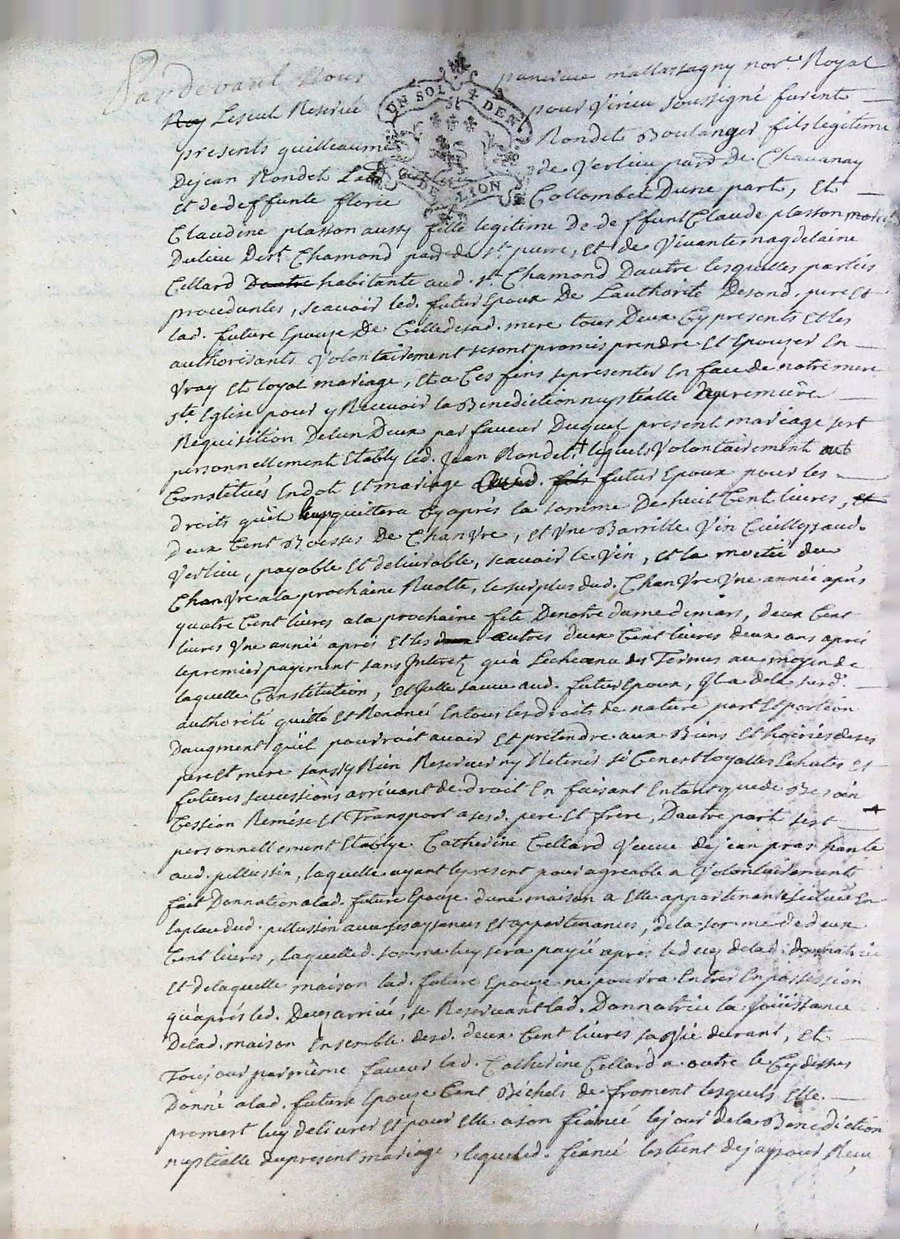 Pardevant Nous mallassagny nore. Royal
Roy Lescul Reservé pour Virieu soussigné furent
presents guilleaume Rondet Boulanger fils legitime
De jean Rondet Lab. de Vertieu parr. De Chavanay
Et de deffunte florie Collombet Dune part, Et
Claudine plasson aussy fille legitime De deffunt Claude plasson
Du lieu De st. Chamond parr. de st. pierre, Et de Vivante magdelaine
Cellard Dautre habitante aud. st. Chamond Dautre lesquelles parties
procedantes, scavoir led. futur Epoux De Lauthorité De sond. pere Et
lad. future Epouse De Celle de sad. mere tous Deux Cy presents Et les
authorisants Volontairement se sont promis prendre Et Epouser En
Vray Et loyal mariage, Et a Ces fins se presenter En face de notre mere
ste Eglise pour y Recevoir la Benediction nuptialle a premiere
Requisition De lun Deux par faveur Duquel present mariage sest
personnellement Etably led. Jean Rondet lequel Volontairement
Constitués En dot Et mariage aud. fils futur Epoux pour les
droits quil quittera Cy après la somme De huit Cent livres, Et
deux Cent de Chanvre, Et Vne Barrille Vin Cuilly aud.
Vertieu, payable Et delivrable, scavoir le Vin, Et la moitié du
Chanvre a la prochaine Recolte, le surplus dud. Chanvre Vne année après
quatre Cent livres a la prochaine fête De notre dame de mars, deux Cent
livres Vne année après Et les deux autres deux Cent livres deux ans après
le premier payement sans Interetz qu'a Lecheance des Termes au moyen de
laquelle Constitution, Et Icelle sauve aud. futur Epoux, Il a de lad. susd.
authorité quitté Et Renoncé En tous les droits de nature part Et portion
Daugment qu'il pourroit avoir Et pretendre aux Biens Et hoiries de ses
pere Et mere sans y Rien Reserver ny Retenir si Ce nest loyalles Echutes Et
futures successions arrivant de droit En faisant Entant que de Besoin
Cession Remise Et Transport a sesd. pere Et frere, Dautre part sest
personnellement Etablye Catherine Cellard Veuve de jean pras
aud. pellussin, laquelle ayant le present pour agreable a Volontairement
fait Donnation a lad. future Epouze dune maison a Elle appartenante scituée En
la place dud. pellussin avec ses aysances Et appartenances, de la somme de deux
Cent livres, laquelle d. somme luy sera payée après le decez de lad. donnatrice
Et de laquelle maison lad. future Epouze ne pourra Entrer En possession
qu'après led. Decez arrivé, se Reservant lad. Donnatrice la Jouissance
De lad. maison Ensemble desd. deux Cent livres sa Vie durant, Et
Toujour par même faveur lad. Catherine Cellard a outre le Cy dessus
Donné a lad. future Epouze Cent Bichets de froment lesquels Elle
promet luy delivrer Et pour Elle a son fiancé le jour de la Benediction
nuptialle du present mariage, lequel d. fiancé les tient deja pour Recu
UN SOL 4 DEN
G. DE LION